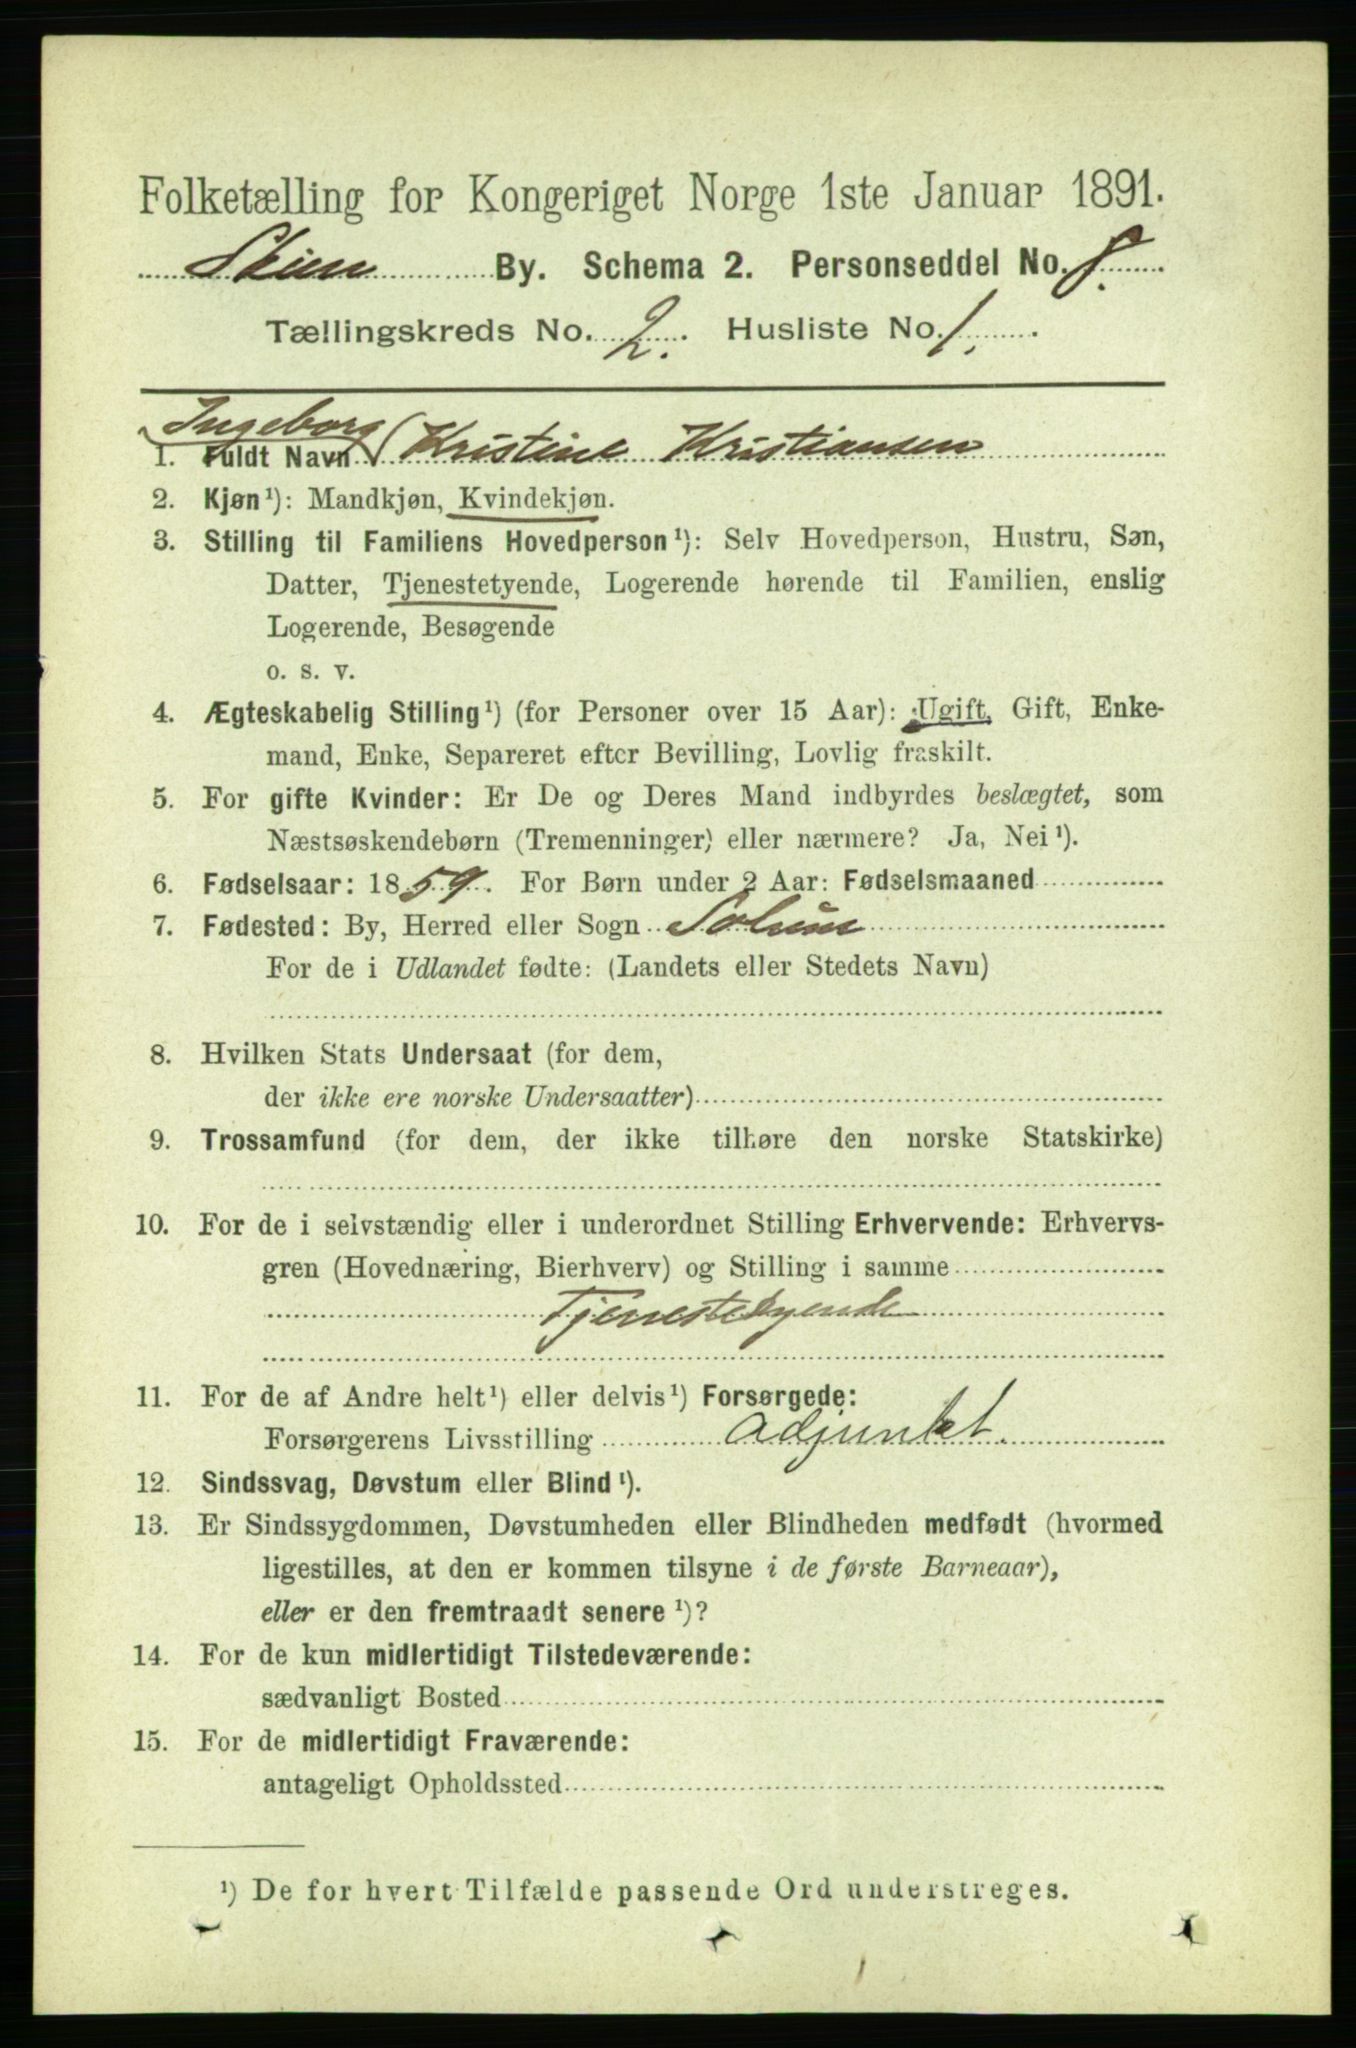 Folketælling for Kongeriget Norge 1ste Januar 1891.
Skien By. Schema 2. Personseddel No. 8.
Tællingskreds No. 2. Husliste No. 1.
Ingeborg
1. Fuldt Navn Kristine Kristiansen
2. Kjøn¹): Mandkjøn, Kvindekjøn.
3. Stilling til Familiens Hovedperson¹): Selv Hovedperson, Hustru, Søn,
Datter, Tjenestetyende, Logerende hørende til Familien, enslig
Logerende, Besøgende
o. s. v.
4. Ægteskabelig Stilling¹) (for Personer over 15 Aar): Ugift, Gift, Enke-
mand, Enke, Separeret efter Bevilling, Lovlig fraskilt.
5. For gifte Kvinder: Er De og Deres Mand indbyrdes beslægtet, som
Næstsøskendebørn (Tremenninger) eller nærmere? Ja, Nei¹).
6. Fødselsaar: 1859. For Børn under 2 Aar: Fødselsmaaned
7. Fødested: By, Herred eller Sogn Solum
For de i Udlandet fødte: (Landets eller Stedets Navn)
8. Hvilken Stats Undersaat (for dem,
der ikke ere norske Undersaatter)
9. Trossamfund (for dem, der ikke tilhøre den norske Statskirke)
10. For de i selvstændig eller i underordnet Stilling Erhvervende: Erhvervs-
gren (Hovednæring, Bierhverv) og Stilling i samme
Tjenestetyende
11. For de af Andre helt¹) eller delvis¹) Forsørgede:
Forsørgerens Livsstilling Adjunkt.
12. Sindssvag, Døvstum eller Blind¹).
13. Er Sindssygdommen, Døvstumheden eller Blindheden medfødt (hvormed
ligestilles, at den er kommen tilsyne i de første Barneaar),
eller er den fremtraadt senere¹)?
14. For de kun midlertidigt Tilstedeværende:
sædvanligt Bosted
15. For de midlertidigt Fraværende:
antageligt Opholdssted
¹) De for hvert Tilfælde passende Ord understreges.